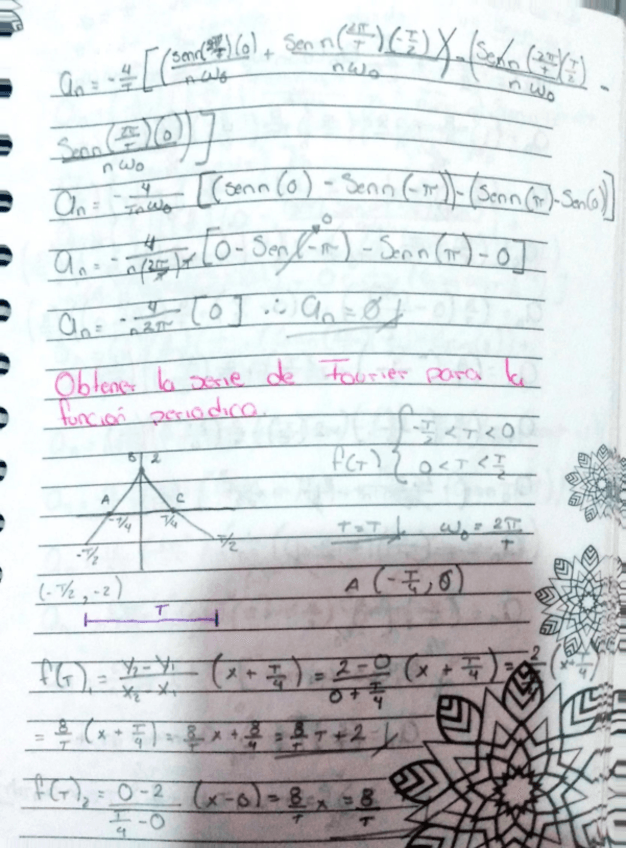 an = -4/T [ (sen n(2π/T)(0)/nω₀ + sen n(2π/T)(-T/2)/nω₀ ) - (Sen n(2π/T)(T/2)/nω₀ -
Sen n(2π/T)(0)/nω₀ ) ]
an = -4/Tnω₀ [(sen n(0) - Sen n(-π)) - (Sen n(π) - Sen(0)]
an = -4/n(2π/T)T [0 - Sen(-π) - Sen n(π) - 0] 0
an = -4/n2π [0] ∴ an = 0
Obtener la serie de Fourier para la
función periodica.
f(T) { -T/2 < T < 0
0 < T < T/2
B 2
A C
-T/4 T/4
-T/2 T/2
T = T ω₀ = 2π/T
(-T/2, -2) A (-T/4, 0)
T
f(T)₁ = y₂ - y₁ / x₂ - x₁ (x + T/4) = 2 - 0 / 0 + T/4 (x + T/4) = (x + T/4)
= 8/T (x + T/4) = 8/T x + 8/4 = 8/T T + 2
f(T)₂ = 0 - 2 / T/4 - 0 (x - 0) = 8/T x = 8/T